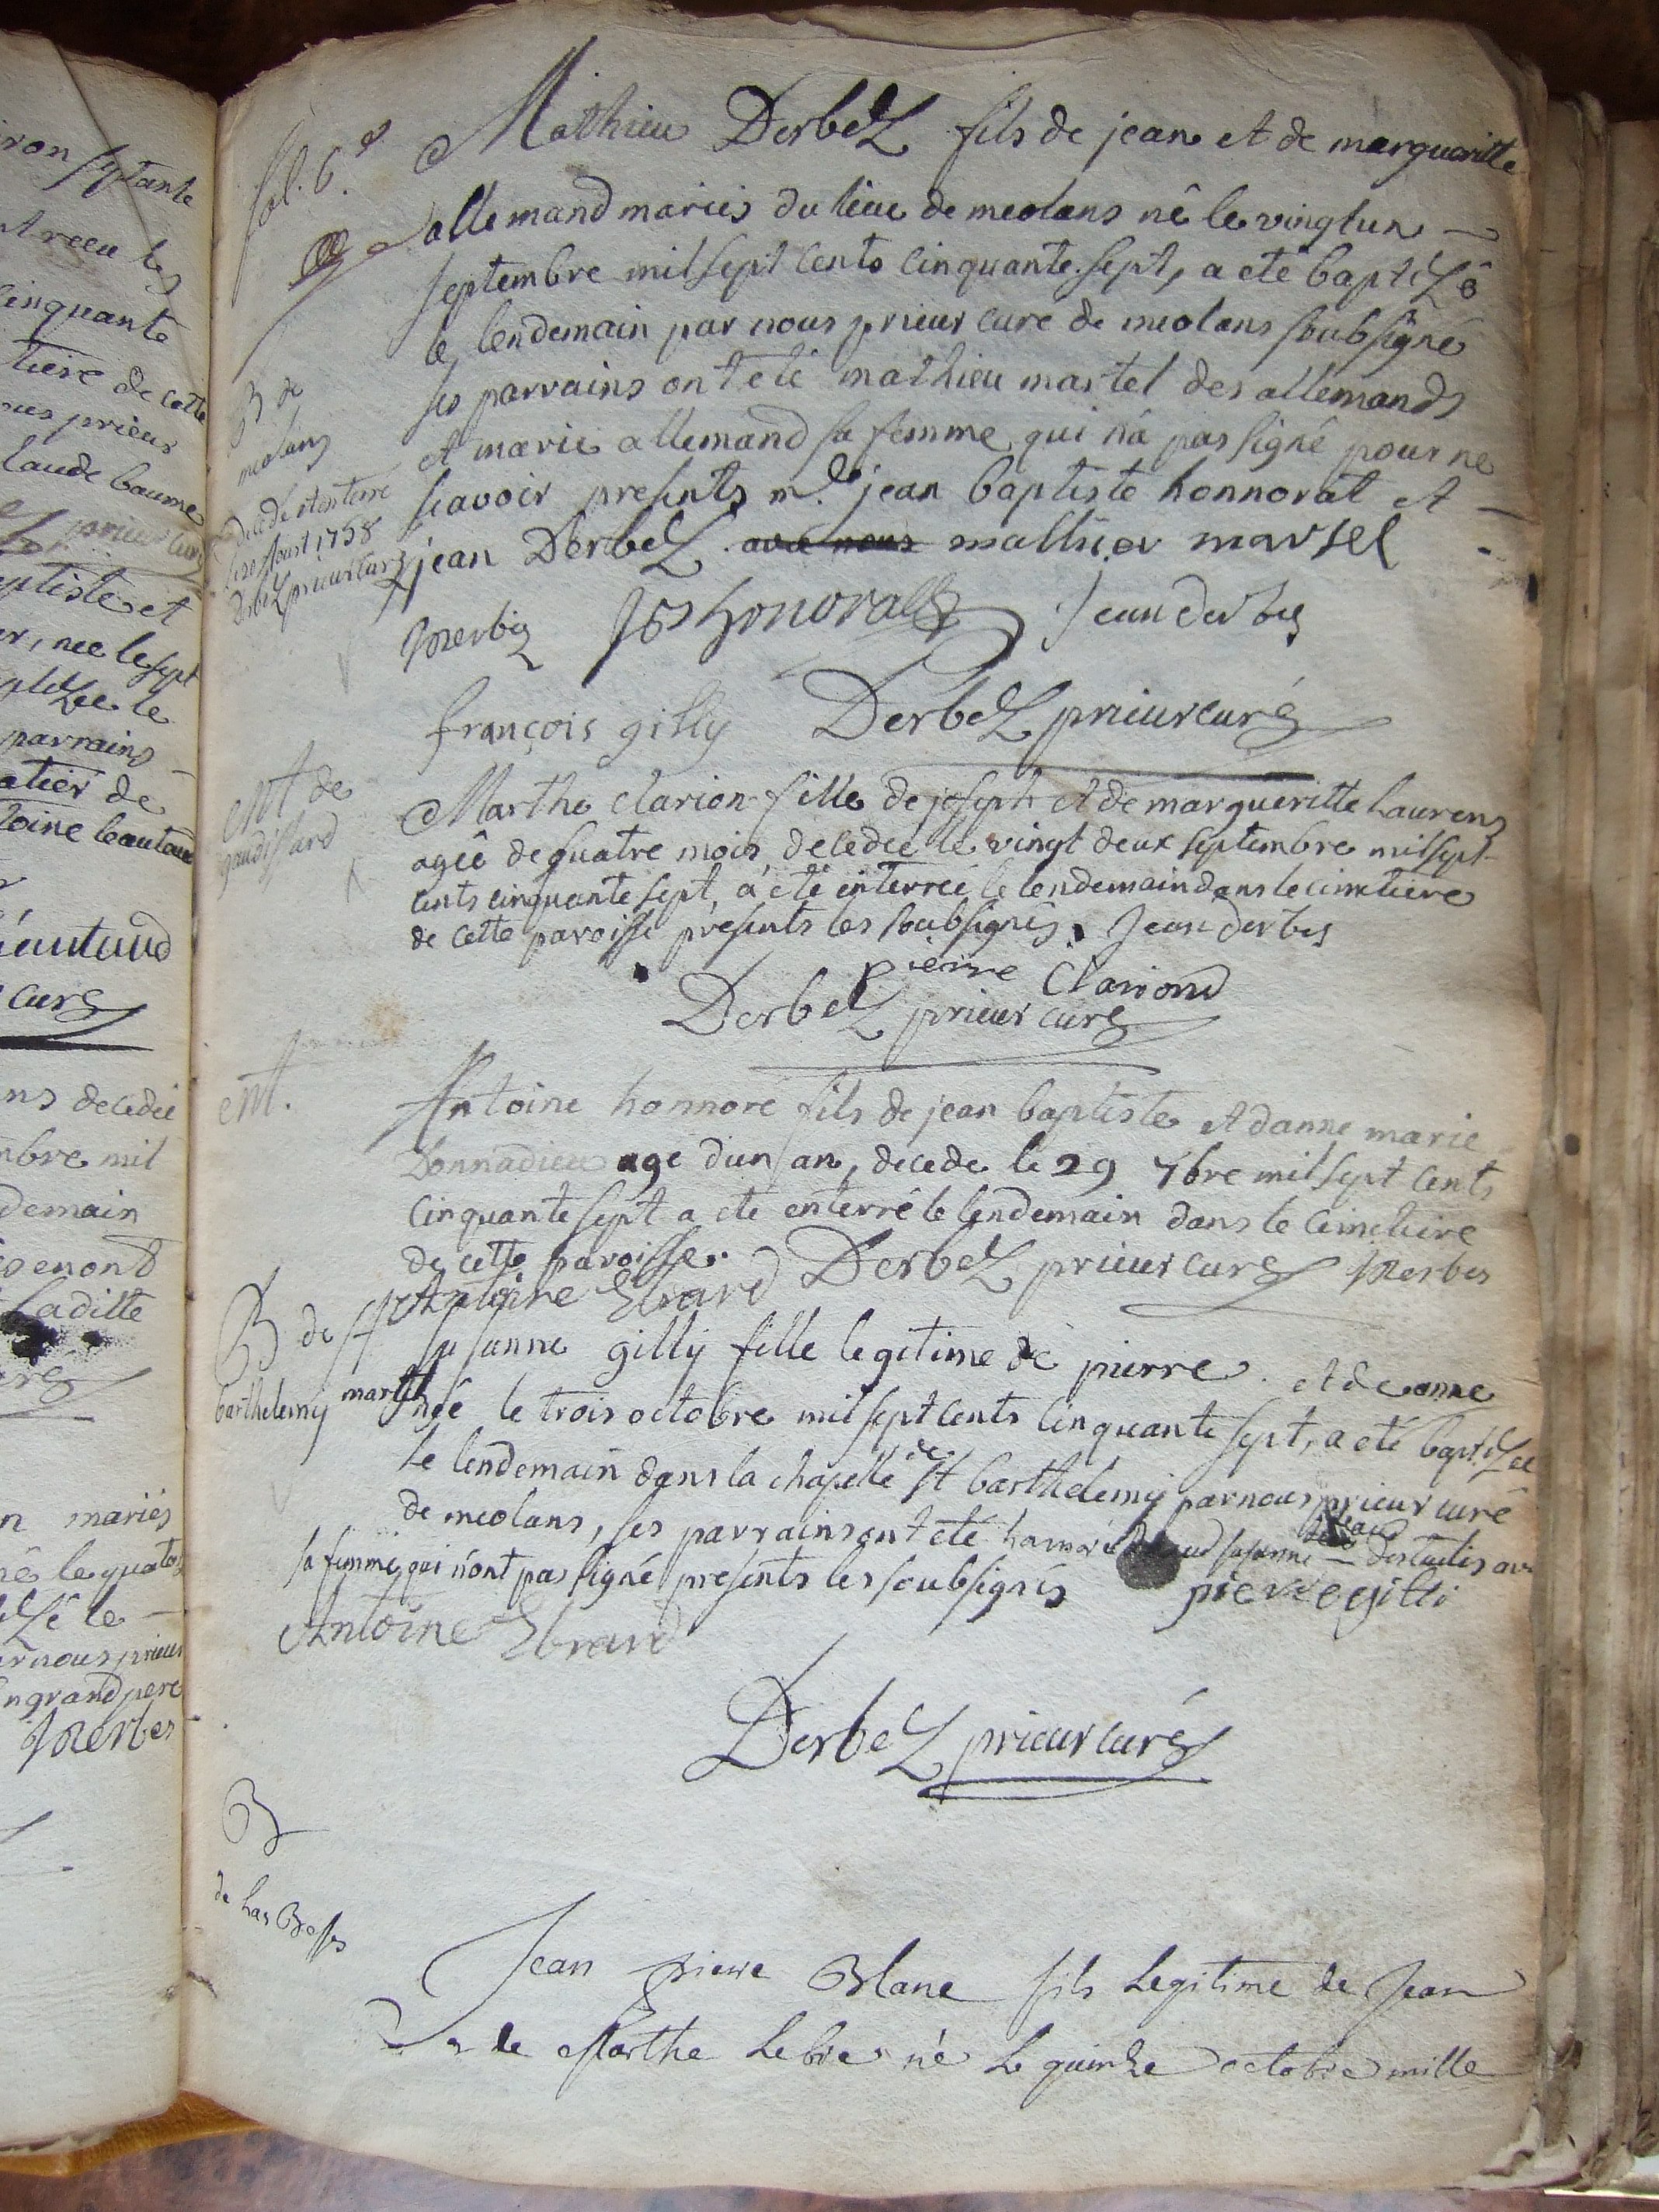 fol. 6.e
Mathieu Derbez fils de jean et de margueritte
allemand mariés du lieu de meolans né le vingt un
septembre mil sept cents cinquante sept, a eté baptizé
le lendemain par nous prieur curé de meolans soubsigné
ses parrains ont eté mathieu martel des allemands
et marie allemand sa femme qui n'a pas signé pour ne
scavoir presents m.e jean baptiste honnorat et
jean Derbez mathier marsel
B de
meolans
decedé et enterré
Aoust 1758
Derbez prieur curé
Jean derbes
françois gilly Derbez prieur curé
ent de
gaudissard
Marthe clarion fille de joseph et de margueritte Laurens
ageé de quatre mois, decedeé le vingt deux septembre mil sept
cents cinquante sept, a eté enterreé le lendemain dans le cimetiere
de cette paroisse présents les soubsignés. Jean derbes
pierre Clariond
Derbez prieur curé
ent.
Antoine honnoré fils de jean baptiste et danne marie
Donnadieu agé d'un an, decedé le 29 7bre mil sept cents
cinquante sept a eté enterré le lendemain dans le cimetiere
de cette paroisse. Derbez prieur curé
Antoine Ebrard
B de st
barthelemy
susanne gilly fille legitime de pierre et de anne
martel née le trois octobre mil sept cents cinquante sept, a eté baptizée
le lendemain dans la chapelle de st barthelemy par nous prieur curé
de meolans, ses parrains ont eté honnoré susanne
sa femme, qui n'ont pas signé presents les soubsignés pierre gilli
Antoine Ebrard
Derbez prieur curé
B
de Las Bosses
Jean pierre Blanc fils Legitime de Jean
de Marthe Lebre né le quinze octobre mille
iron
et receu les
cinquante
tiere de cette
nous prieur
laude baume
prieur curé
baptiste et
née le sept
parrains
atier de
toine leautaud
leautaud
curé
decedée
mbre mil
demain
Laditte
mariés
né le
par nous prieur
grand pere